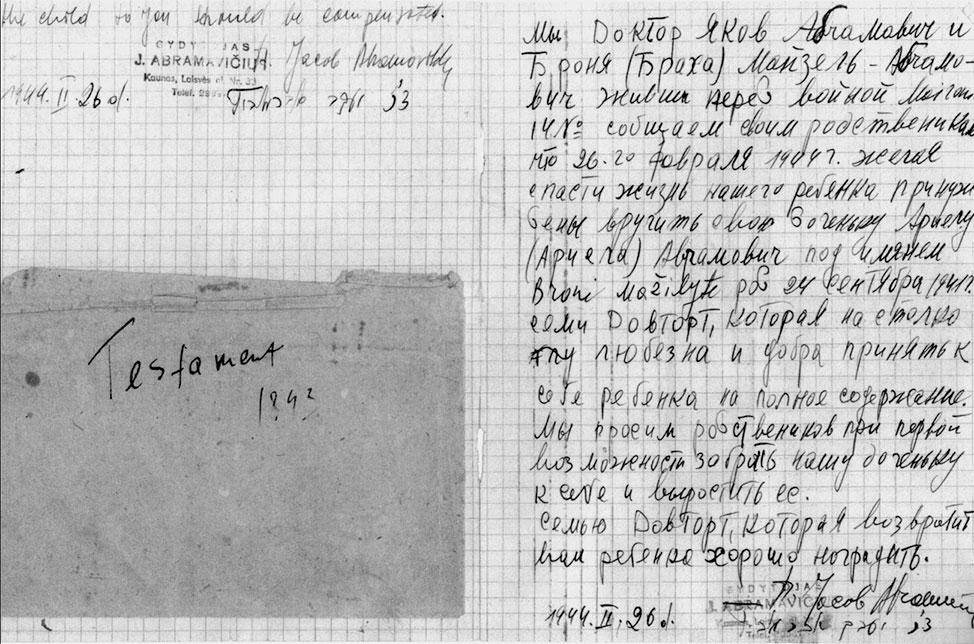 the child to you should be compensated.
GYDYTOJAS
J. ABRAMAVIČIUS
Kaunas, Laisvės al. Nr.
Telef.
Dr. Jacob Abramovitch
1944.II.26 d.
Testament
Мы Доктор Яков Абрамович и
Броня (Браха) Майзель-Абрамо-
вич живши перед войной
14№ собщаем своим родственикам
что 26-го февраля 1944г. желая
спасти жизнь нашего ребенка принуж
дены вручить свою доченьку Ариелу
(Ариела) Абрамович под имянем
Broni Mažilytė рож 24 сентября 1941г.
семи Довторт, которая на столко
любезна и добра принять к
себе ребенка на полное содержание.
Мы просим родствеников при первой
возможности забрать нашу доченьку
к себе и выростить ее.
Семью Довторт, которая возвратит
вам ребенка хорошо наградить.
GYDYTOJAS
J. ABRAMAVIČIUS
Dr. Jacob
1944.II.26 d.